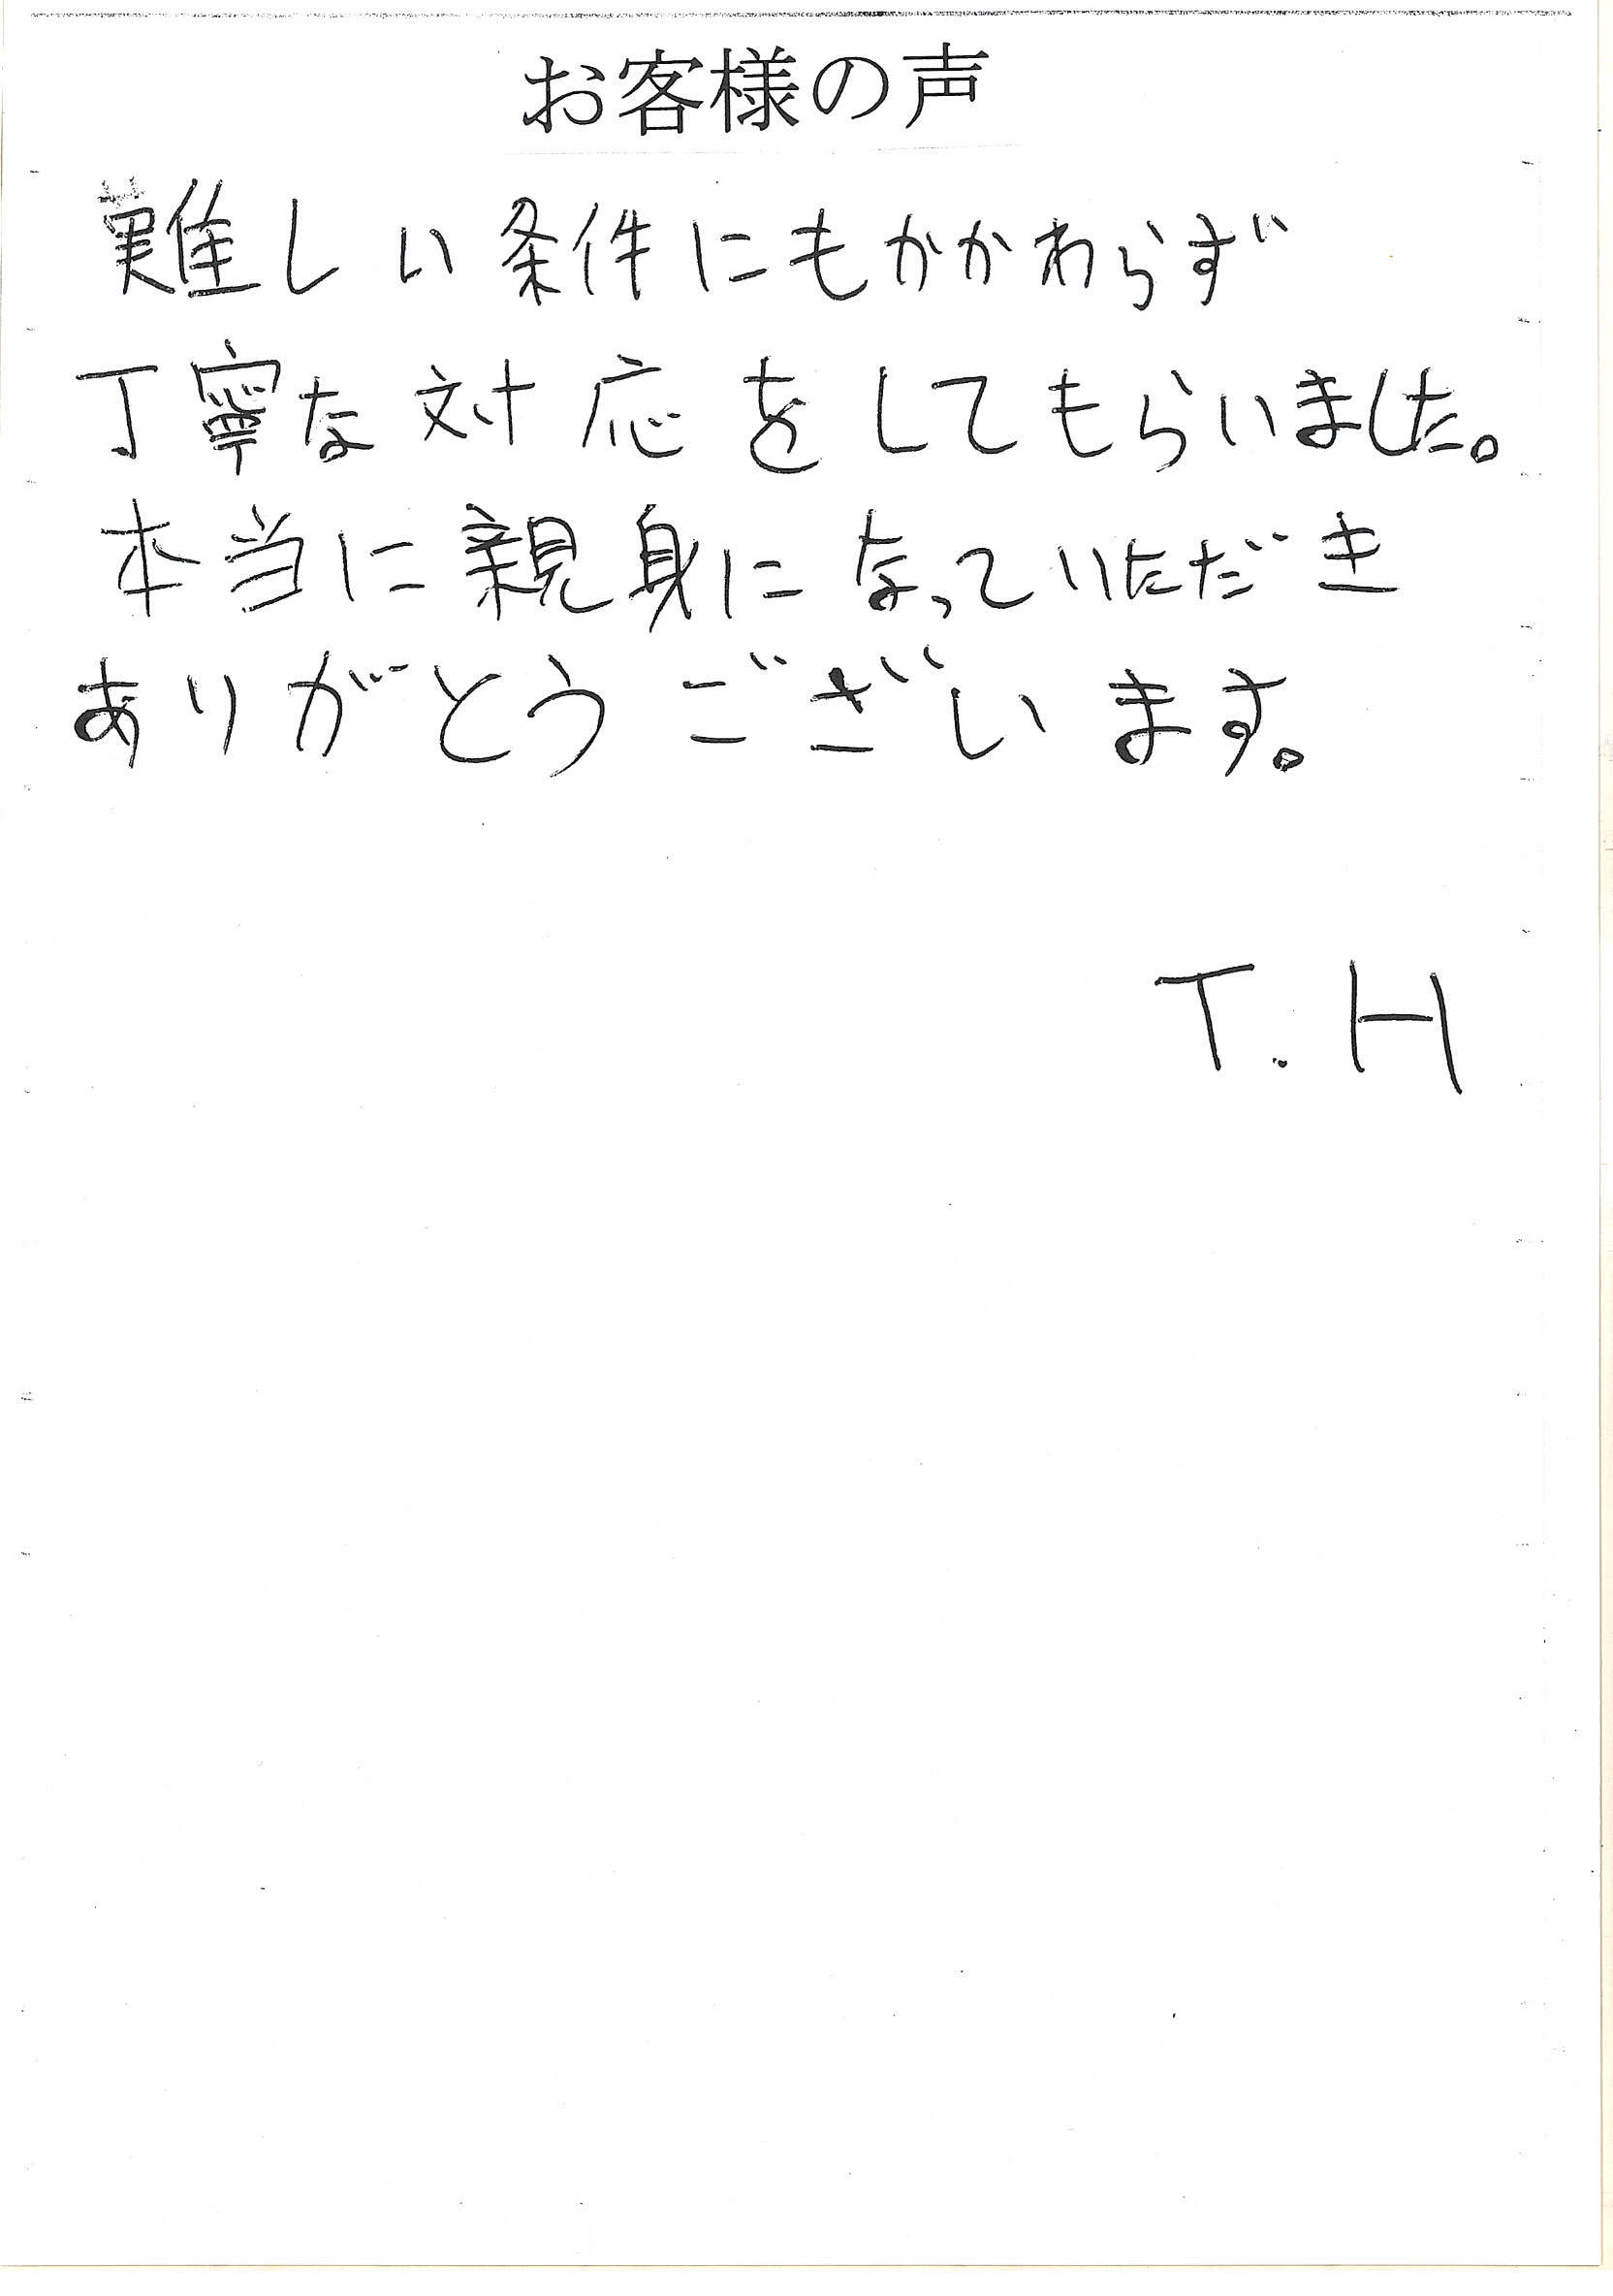 お客様の声
難しい条件にもかかわらず
丁寧な対応をしてもらいました。
本当に親身になっていただき
ありがとうございます。
T.H